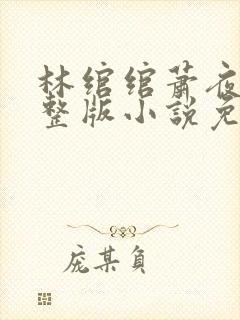 林绾绾萧夜
整版小説免
庞某負